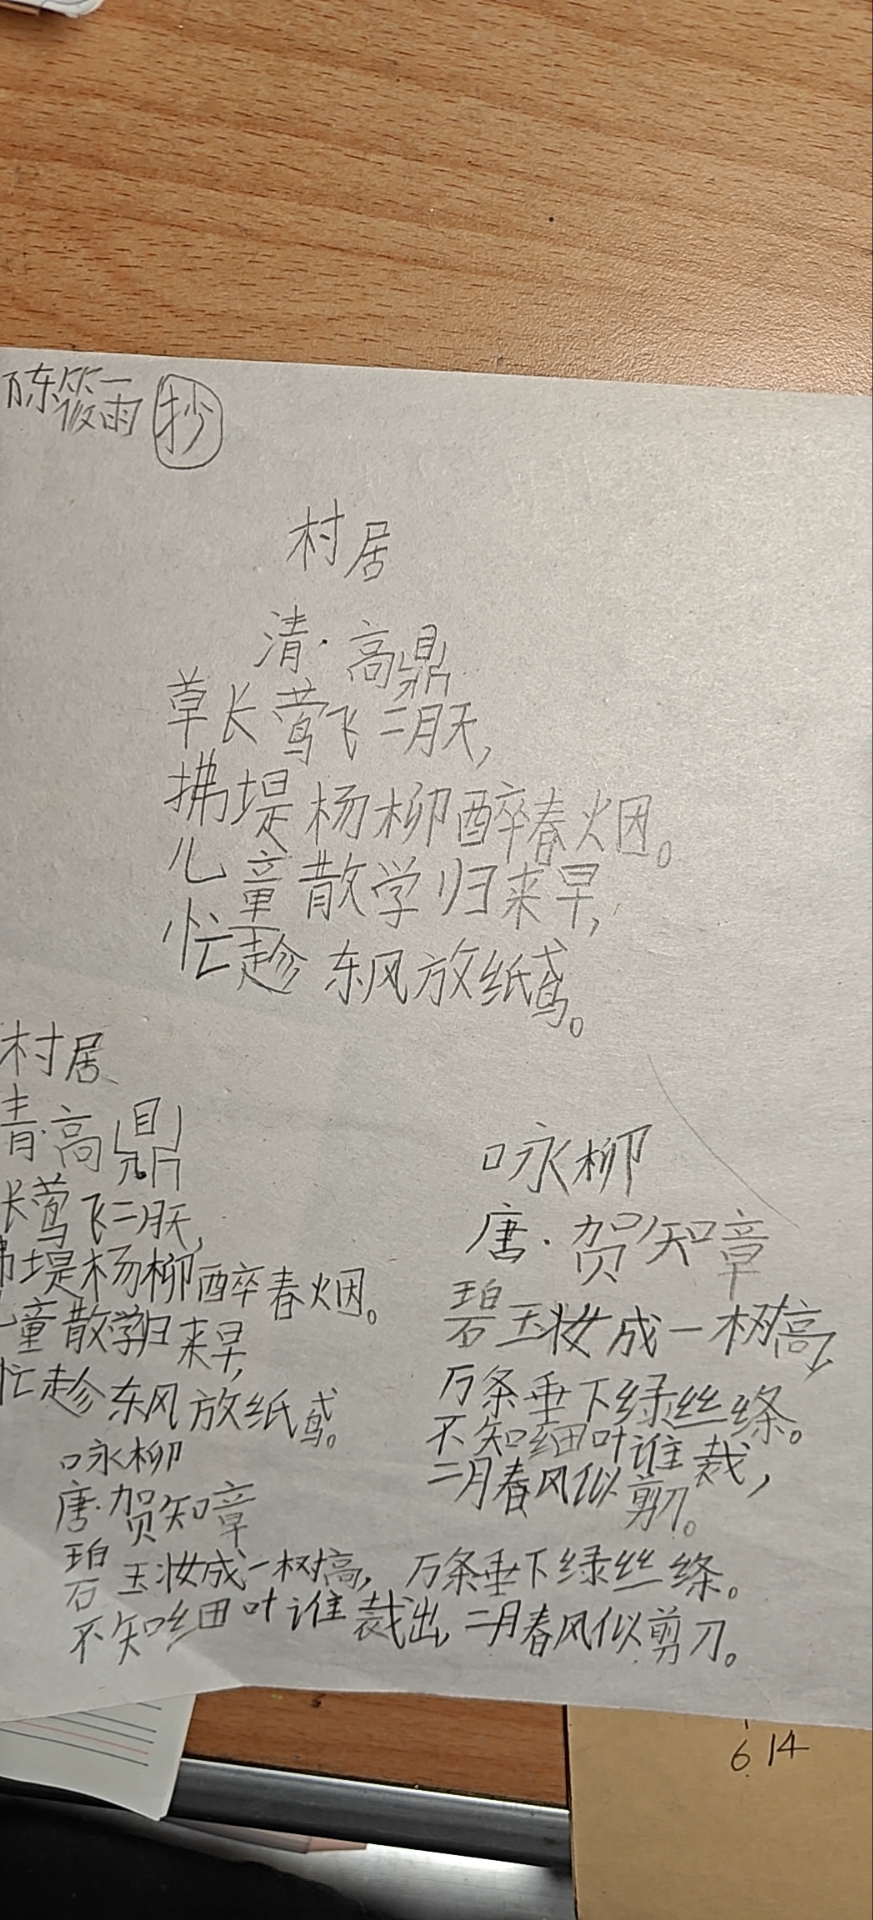 陈筱雨 抄
村居
清·高鼎
草长莺飞二月天，
拂堤杨柳醉春烟。
儿童散学归来早，
忙趁东风放纸鸢。
村居
青·高鼎
长莺飞二月天，
堤杨柳醉春烟。
童散学归来早，
忙趁东风放纸鸢。
咏柳
唐·贺知章
碧玉妆成一树高，
万条垂下绿丝绦。
不知细叶谁裁，
二月春风似剪刀。
咏柳
唐·贺知章
碧玉妆成一树高，万条垂下绿丝绦。
不知细叶谁裁出，二月春风似剪刀。
6.14